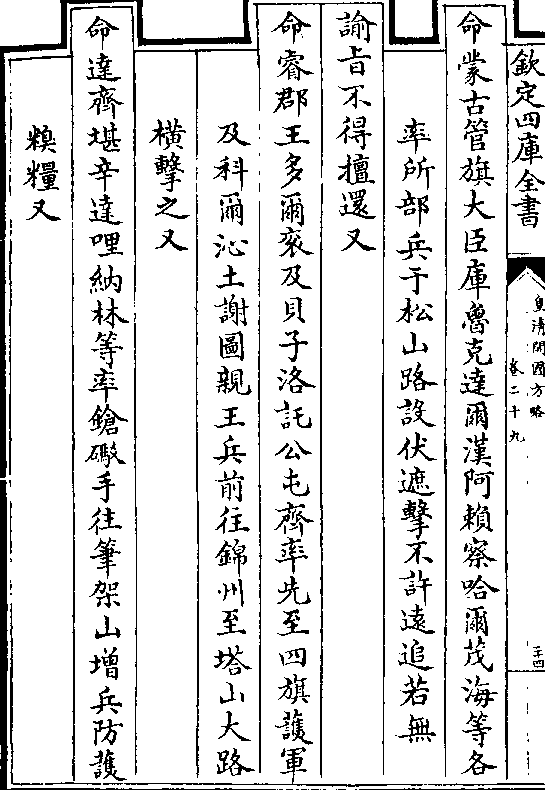 欽定四庫全書
皇清開國方略
卷二十九
二十四
命蒙古管旗大臣庫魯克達爾漢阿賴察哈爾茂海等各
率所部兵于松山路設伏遮擊不許遠追若無
諭旨不得擅還又
命睿郡王多爾袞及貝子洛託公屯齊率先至四旗護軍
及科爾沁土謝圖親王兵前往錦州至塔山大路
橫擊之又
命達齊堪辛達哩納林等率鎗礮手往筆架山增兵防護
糗糧又